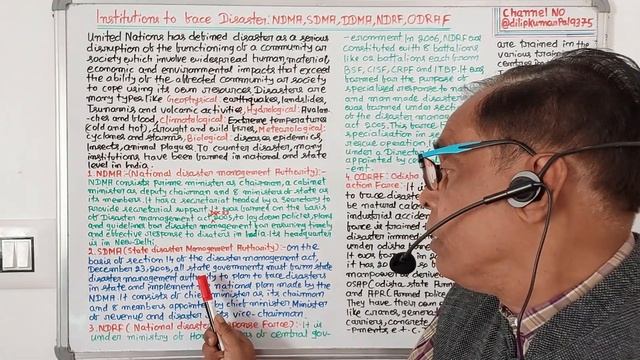 Institutions to brace Disaster. NDMA, SDMA, DDMA, NDRF, ODRAF
Channel No
@dilipkumarpal9375
United Nations has defined disaster as a serious
disruption of the functioning of a community or
society which involve widespread human, material,
economic and environmental impacts that exceed
the ability of the affected community or society
to cope using its own resources. Disasters are
many types like Geophysical: earthquakes, landslides,
Tsunamis and volcanic activities, Hydrological: Avalan-
-ches and blood, Climatological: Extreme temperatures
(cold and hot), drought and wild fires, Meteorological:
cyclones and storms, Biological: disease epidemics,
Insects, animal plagues To counter disaster, many
institutions have been formed in national and state
level in India.
1. NDMA:-(National disaster management Authority):-
NDMA consists prime minister as chairman, a cabinet
minister as deputy chairman and 8 ministers of state as
its members. It has a secretariat headed by a secretary to
provide secretarial support. It was formed on the basis
of Disaster management act, 2005, to lay down policies, plans
and guidelines for disaster management for ensuring timely
and effective response to disasters in India. Its headquarter
is in New-Delhi.
2. SDMA (State disaster Management Authority):- On the
basis of section 14 of the disaster management act,
December 23, 2005, all state governments must form state
disaster management authority to plan to face disasters
in state and implement national plan made by the
NDMA. It consists of chief minister as its chairman
and 8 members appointed by chief minister. Minister
of revenue and disaster vice-chairman.
3. NDRF (National disaster Response Force):- It is
under ministry of Home of central gov-
-ernment. In 2006, NDRF was
constituted with 8 battalions
like 02 battalions each from
BSF, CISF, CRPF and ITBP. It was
formed for the purpose of
specialised response to
and man made disaster
under section
of the disaster
act 2005. This force
specialisation in
rescue operation. It
under a Director
appointed by cent
-ent.
4. ODRAF: Odisha
action Force: It is
to face disaster
be mad
industrial accide
force is trained
disaster imme
under odisha
It was form
It has 20
manpower deriv
OSAP (odisha state
and APR (Armed police
They have their own
like cranes, genera
carriers, concrete
-pments, e.t.c.
are trained in the
various train
centre